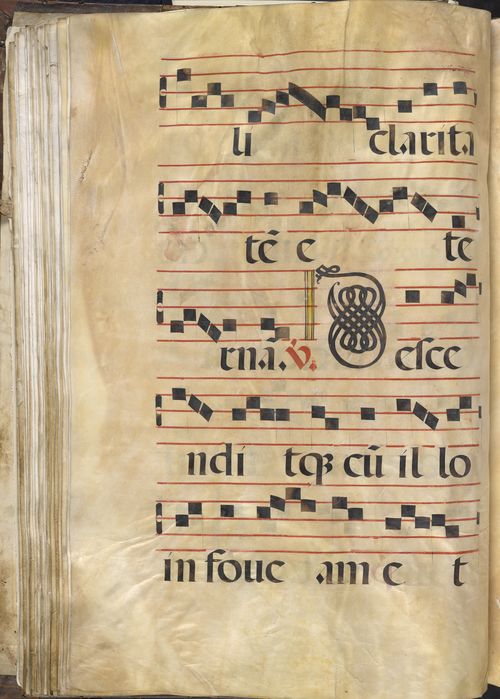 li claritа
tē e te
rnā. ℣. Desce
ndi tqꝫ cū il lo
in foue am e t